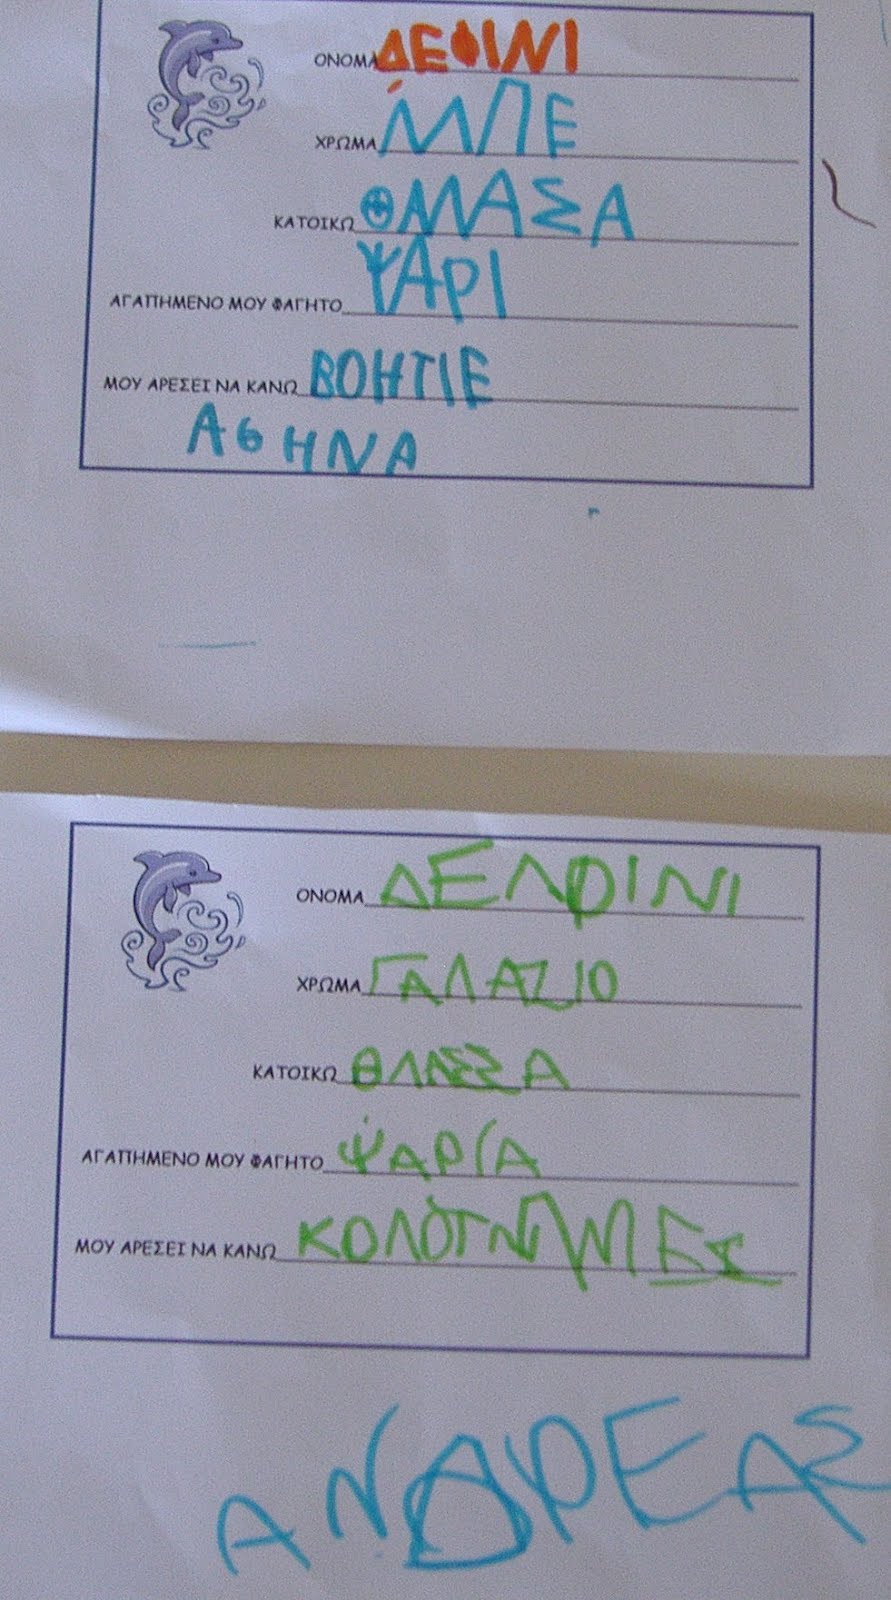 ΟΝΟΜΑ ΔΕΦΙΝΙ
ΧΡΩΜΑ ΜΠΕ
ΚΑΤΟΙΚΩ ΘΑΛΑΣΑ
ΑΓΑΠΗΜΕΝΟ ΜΟΥ ΦΑΓΗΤΟ ΨΑΡΙ
ΜΟΥ ΑΡΕΣΕΙ ΝΑ ΚΑΝΩ ΒΟΗΤΙΕ
ΑΘΗΝΑ
ΟΝΟΜΑ ΔΕΛΦΙΝΙ
ΧΡΩΜΑ ΓΑΛΑΖΙΟ
ΚΑΤΟΙΚΩ ΘΛΑΣΣΑ
ΑΓΑΠΗΜΕΝΟ ΜΟΥ ΦΑΓΗΤΟ ΨΑΡΙΑ
ΜΟΥ ΑΡΕΣΕΙ ΝΑ ΚΑΝΩ
ΑΝΔΡΕΑΣ